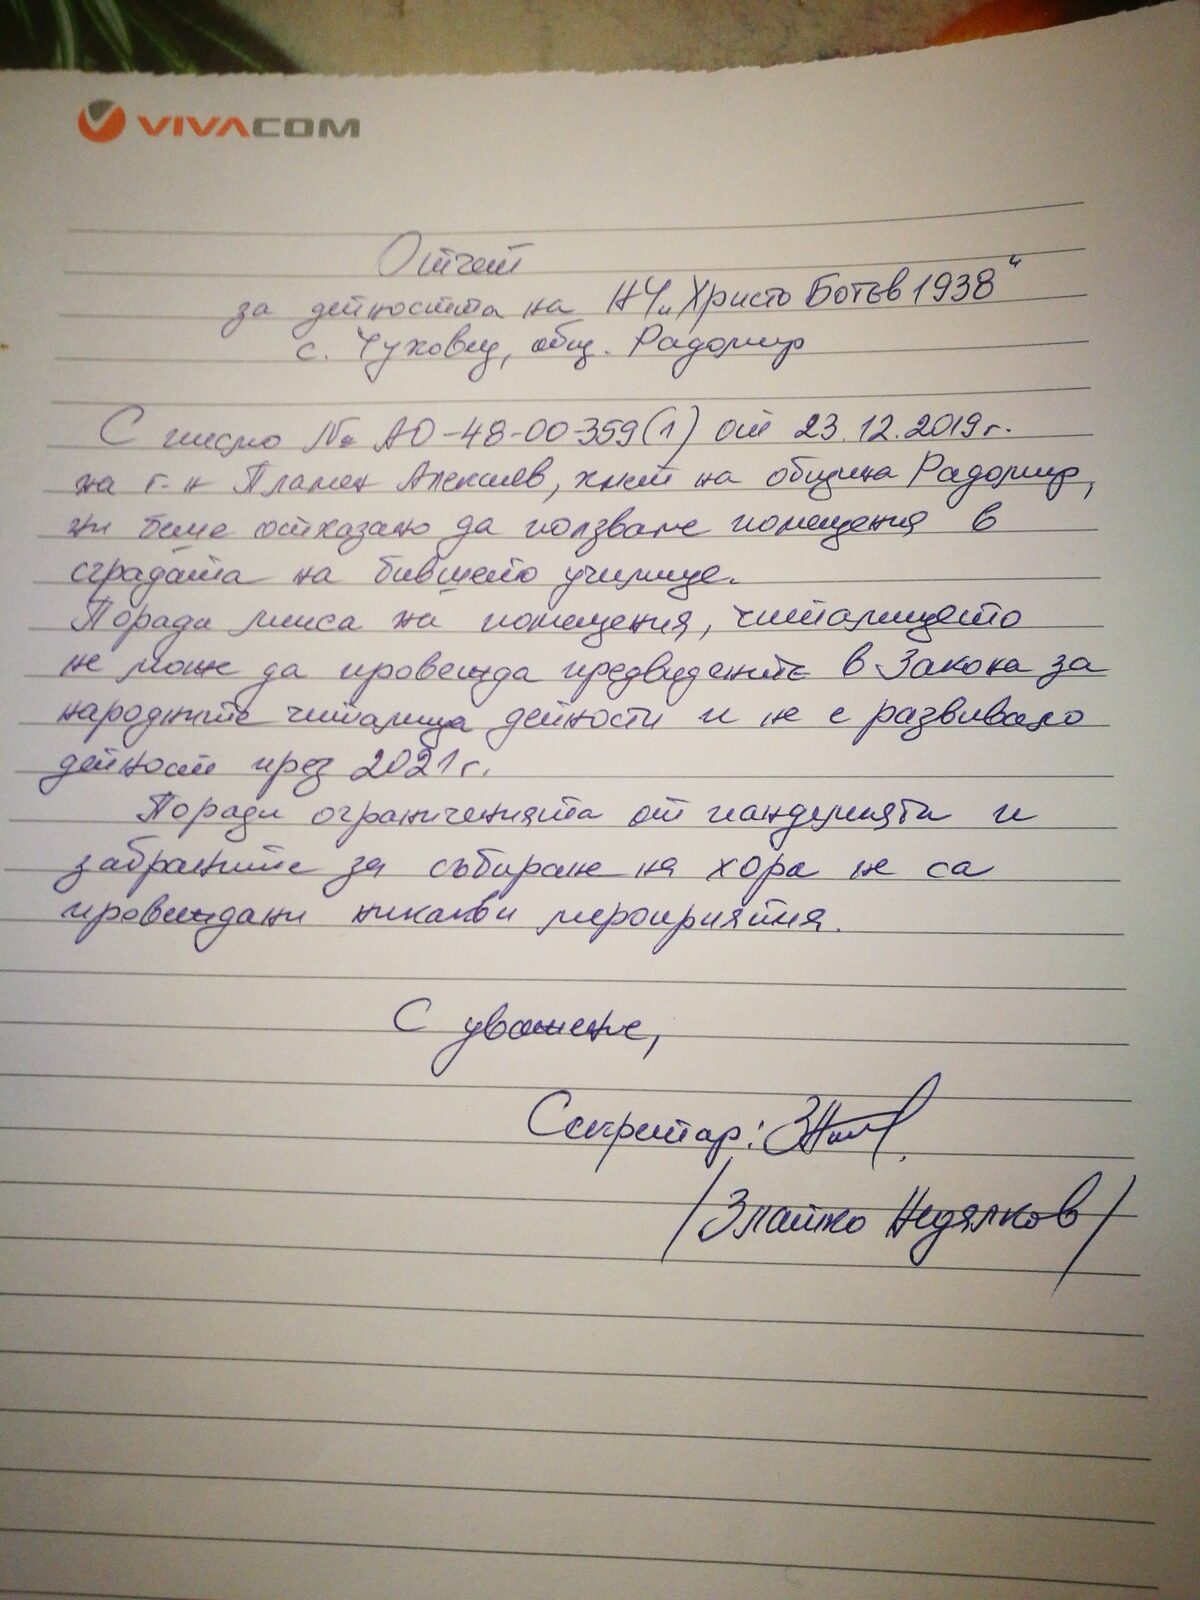 VIVACOM
Отчет
за дейността на НЧ „Христо Ботев 1938“
с. Чуковец, общ. Радомир
С писмо № АО-48-00-359(1) от 23.12.2019г.
на г-н Пламен Алексиев, кмет на община Радомир,
ни беше отказано да ползваме помещения в
сградата на бившето училище.
Поради липса на помещения, читалището
не може да провежда предвидените в Закона за
народните читалища дейности и не е развивало
дейност през 2021г.
Поради ограниченията от пандемията и
забраните за събиране на хора не са
провеждани никакви мероприятия.
С уважение,
Секретар:
/Златко Недялков/